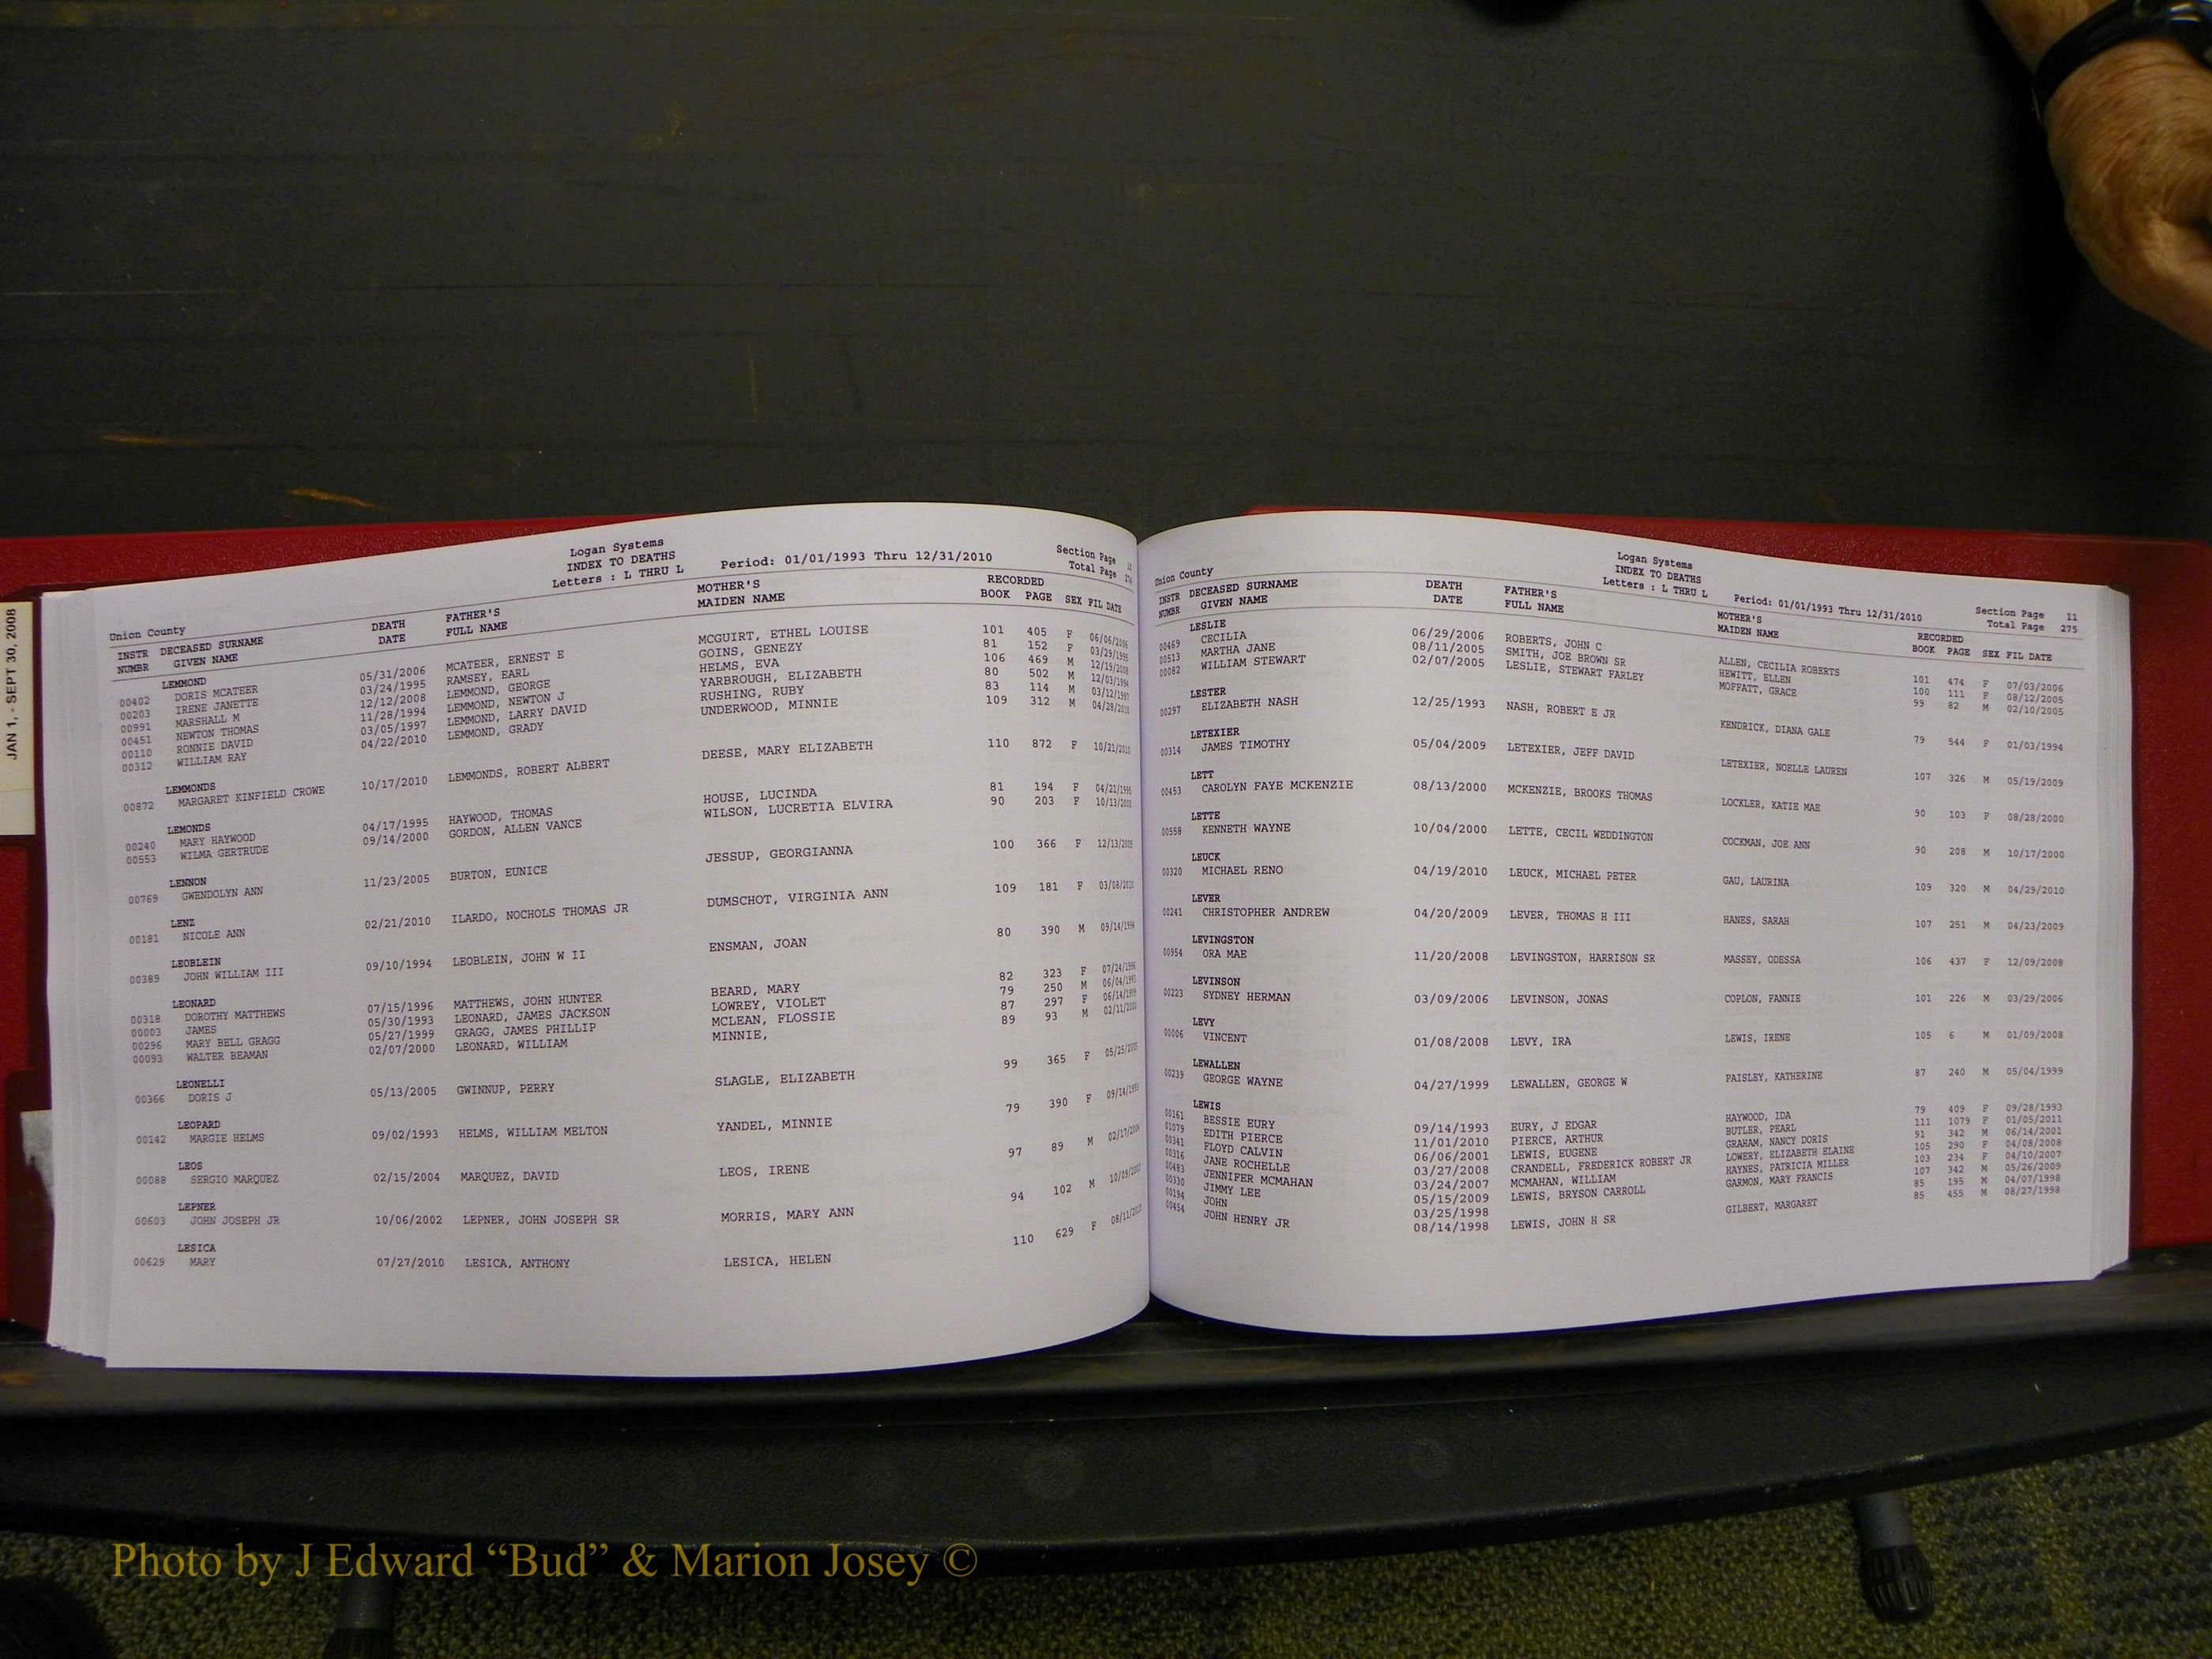 JAN 1, - SEPT 30, 2008
Logan Systems
INDEX TO DEATHS
Letters : L THRU L Period: 01/01/1993 Thru 12/31/2010
Section Page
Total Page
Union County
INSTR DECEASED SURNAME DEATH FATHER'S MOTHER'S RECORDED
NUMBR GIVEN NAME DATE FULL NAME MAIDEN NAME BOOK PAGE SEX FIL DATE
LEMMOND
00402 DORIS MCATEER 05/31/2006 MCATEER, ERNEST E MCGUIRT, ETHEL LOUISE 101 405 F 06/06/2006
00203 IRENE JANETTE 03/24/1995 RAMSEY, EARL GOINS, GENEZY 81 152 F 03/29/1995
00991 MARSHALL M 12/12/2008 LEMMOND, GEORGE HELMS, EVA 106 469 M 12/19/2008
00451 NEWTON THOMAS 11/28/1994 LEMMOND, NEWTON J YARBROUGH, ELIZABETH 80 502 M 12/03/1994
00110 RONNIE DAVID 03/05/1997 LEMMOND, LARRY DAVID RUSHING, RUBY 83 114 M 03/12/1997
00312 WILLIAM RAY 04/22/2010 LEMMOND, GRADY UNDERWOOD, MINNIE 109 312 M 04/28/2010
LEMMONDS
00872 MARGARET KINFIELD CROWE 10/17/2010 LEMMONDS, ROBERT ALBERT DEESE, MARY ELIZABETH 110 872 F 10/21/2010
LEMONDS
00240 MARY HAYWOOD 04/17/1995 HAYWOOD, THOMAS HOUSE, LUCINDA 81 194 F 04/21/1995
00553 WILMA GERTRUDE 09/14/2000 GORDON, ALLEN VANCE WILSON, LUCRETIA ELVIRA 90 203 F 10/13/2000
LENNON
00769 GWENDOLYN ANN 11/23/2005 BURTON, EUNICE JESSUP, GEORGIANNA 100 366 F 12/13/2005
LENZ
00181 NICOLE ANN 02/21/2010 ILARDO, NOCHOLS THOMAS JR DUMSCHOT, VIRGINIA ANN 109 181 F 03/08/2010
LEOBLEIN
00389 JOHN WILLIAM III 09/10/1994 LEOBLEIN, JOHN W II ENSMAN, JOAN 80 390 M 09/14/1994
LEONARD
00318 DOROTHY MATTHEWS 07/15/1996 MATTHEWS, JOHN HUNTER BEARD, MARY 82 323 F 07/24/1996
00003 JAMES 05/30/1993 LEONARD, JAMES JACKSON LOWREY, VIOLET 79 250 M 06/04/1993
00296 MARY BELL GRAGG 05/27/1999 GRAGG, JAMES PHILLIP MCLEAN, FLOSSIE 87 297 F 06/14/1999
00093 WALTER BEAMAN 02/07/2000 LEONARD, WILLIAM MINNIE, 89 93 M 02/11/2000
LEONELLI
00366 DORIS J 05/13/2005 GWINNUP, PERRY SLAGLE, ELIZABETH 99 365 F 05/25/2005
LEOPARD
00142 MARGIE HELMS 09/02/1993 HELMS, WILLIAM MELTON YANDEL, MINNIE 79 390 F 09/14/1993
LEOS
00088 SERGIO MARQUEZ 02/15/2004 MARQUEZ, DAVID LEOS, IRENE 97 89 M 02/17/2004
LEPNER
00603 JOHN JOSEPH JR 10/06/2002 LEPNER, JOHN JOSEPH SR MORRIS, MARY ANN 94 102 M 10/09/2002
LESICA
00629 MARY 07/27/2010 LESICA, ANTHONY LESICA, HELEN 110 629 F 08/11/2010
Logan Systems
INDEX TO DEATHS
Letters : L THRU L Period: 01/01/1993 Thru 12/31/2010
Section Page 11
Total Page 275
Union County
INSTR DECEASED SURNAME DEATH FATHER'S MOTHER'S RECORDED
NUMBR GIVEN NAME DATE FULL NAME MAIDEN NAME BOOK PAGE SEX FIL DATE
LESLIE
00469 CECILIA 06/29/2006 ROBERTS, JOHN C ALLEN, CECILIA ROBERTS 101 474 F 07/03/2006
00513 MARTHA JANE 08/11/2005 SMITH, JOE BROWN SR HEWITT, ELLEN 100 111 F 08/12/2005
00082 WILLIAM STEWART 02/07/2005 LESLIE, STEWART FARLEY MOFFATT, GRACE 99 82 M 02/10/2005
LESTER
00297 ELIZABETH NASH 12/25/1993 NASH, ROBERT E JR KENDRICK, DIANA GALE 79 544 F 01/03/1994
LETEXIER
00314 JAMES TIMOTHY 05/04/2009 LETEXIER, JEFF DAVID LETEXIER, NOELLE LAUREN 107 326 M 05/19/2009
LETT
00453 CAROLYN FAYE MCKENZIE 08/13/2000 MCKENZIE, BROOKS THOMAS LOCKLER, KATIE MAE 90 103 F 08/28/2000
LETTE
00558 KENNETH WAYNE 10/04/2000 LETTE, CECIL WEDDINGTON COCKMAN, JOE ANN 90 208 M 10/17/2000
LEUCK
00320 MICHAEL RENO 04/19/2010 LEUCK, MICHAEL PETER GAU, LAURINA 109 320 M 04/29/2010
LEVER
00241 CHRISTOPHER ANDREW 04/20/2009 LEVER, THOMAS H III HANES, SARAH 107 251 M 04/23/2009
LEVINGSTON
00954 ORA MAE 11/20/2008 LEVINGSTON, HARRISON SR MASSEY, ODESSA 106 437 F 12/09/2008
LEVINSON
00223 SYDNEY HERMAN 03/09/2006 LEVINSON, JONAS COPLON, FANNIE 101 226 M 03/29/2006
LEVY
00006 VINCENT 01/08/2008 LEVY, IRA LEWIS, IRENE 105 6 M 01/09/2008
LEWALLEN
00239 GEORGE WAYNE 04/27/1999 LEWALLEN, GEORGE W PAISLEY, KATHERINE 87 240 M 05/04/1999
LEWIS
00161 BESSIE EURY 09/14/1993 EURY, J EDGAR HAYWOOD, IDA 79 409 F 09/28/1993
01079 EDITH PIERCE 11/01/2010 PIERCE, ARTHUR BUTLER, PEARL 111 1079 F 01/05/2011
00341 FLOYD CALVIN 06/06/2001 LEWIS, EUGENE GRAHAM, NANCY DORIS 91 342 M 06/14/2001
00316 JANE ROCHELLE 03/27/2008 CRANDELL, FREDERICK ROBERT JR LOWERY, ELIZABETH ELAINE 105 290 F 04/08/2008
00483 JENNIFER MCMAHAN 03/24/2007 MCMAHAN, WILLIAM HAYNES, PATRICIA MILLER 103 234 F 04/10/2007
00330 JIMMY LEE 05/15/2009 LEWIS, BRYSON CARROLL GARMON, MARY FRANCIS 107 342 M 05/26/2009
00194 JOHN 03/25/1998 85 195 M 04/07/1998
00454 JOHN HENRY JR 08/14/1998 LEWIS, JOHN H SR GILBERT, MARGARET 85 455 M 08/27/1998
Photo by J Edward “Bud” & Marion Josey ©